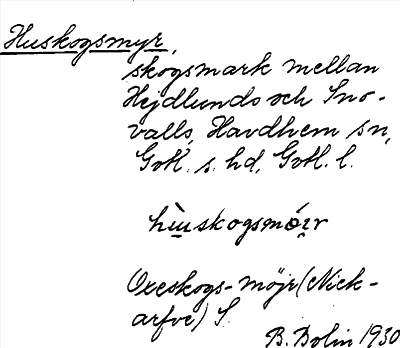 Huskogsmyr,
skogsmark mellan
Hejdlunds och Sno-
valls, Havdhem sn,
Gotl. s. hd, Gotl. l.
hùskogsmóir
Oxeskogs-möjr (Nick-
arfve) S.
B. Bolin 1930